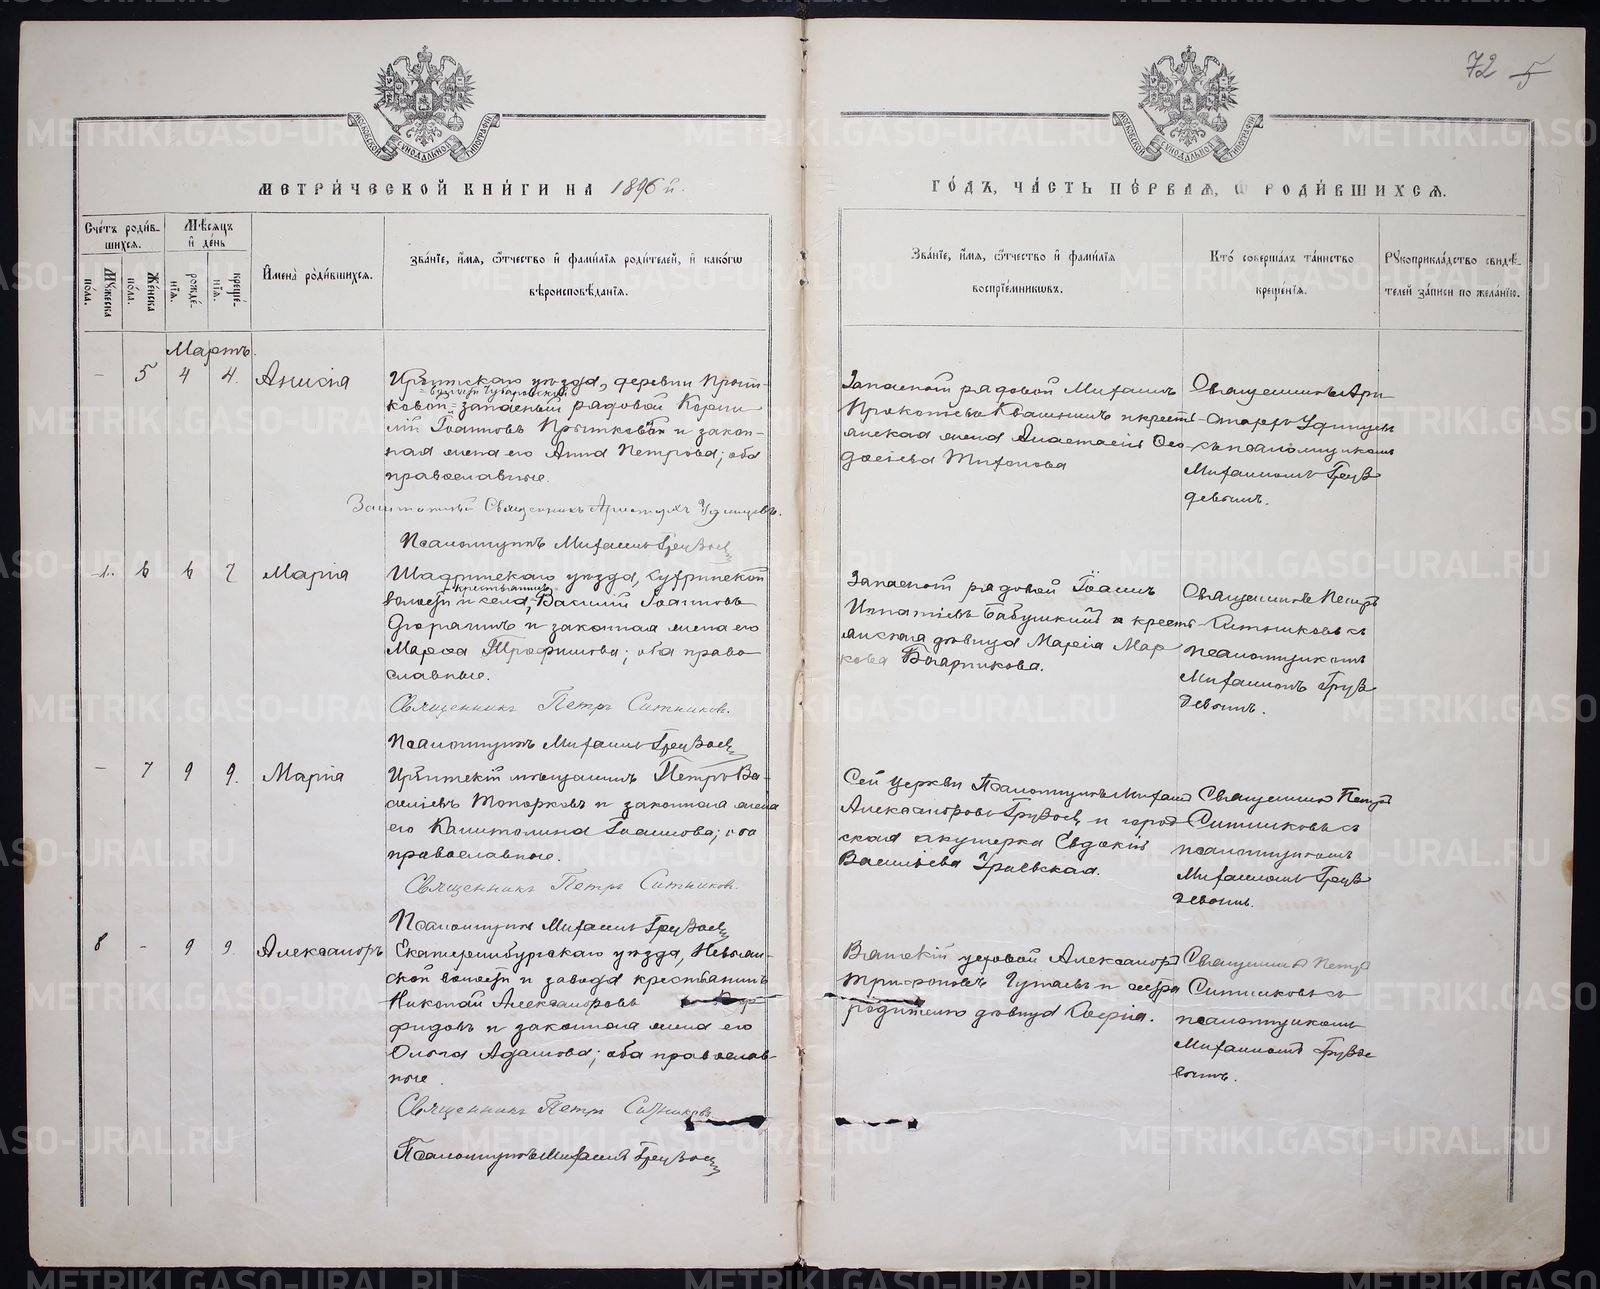 72 5
МЕТРИЧЕСКОЙ КНИГИ НА 1896 й.
ГОДЪ, ЧАСТЬ ПЕРВАЯ, Ѡ РОДИВШИХСЯ.
Счетъ родив-
шихся.
Мужеска пола.
Женска пола.
Мѣсяцъ и день
рожде-
нія.
креще-
нія.
Имена родившихся.
Званіе, имя, ѿчество и фамилія родителей, и какогѡ
вѣроисповѣданія.
Званіе, имя, ѿчество и фамилія
воспріемниковъ.
Кто совершалъ таинство
крещенія.
Рукоприкладство свидѣ-
телей записи по желанію.
Мартъ.
- 5 4 4. Анисія
Ирбитскаго уѣзда, деревни Прыт-
ковой запасный рядовой Корни-
лій Іоанновъ Прытковъ и закон-
ная жена его Анна Петрова; оба
православные.
Заштатный Священникъ Аристархъ Удинцевъ.
Псаломщикъ Михаилъ Груздевъ
Запасной рядовой Михаилъ
Прокопьевъ Квашнинъ и кресть-
янская жена Анастасія Ѳео-
досіева
Священникъ Ари-
стархъ Удинцевъ
съ псаломщикомъ
Михаиломъ Груз-
девымъ.
6 6 7 Марія
Шадринскаго уѣзда,
волости и села, крестьянинъ Василій Іоанновъ
и законная жена его
Марѳа Трофимова; оба право-
славные.
Священникъ Петръ Ситниковъ.
Псаломщикъ Михаилъ Груздевъ
Запасной рядовой Іоаннъ
Игнатіевъ Бабушкинъ и кресть-
янская дѣвица Марія Мар-
кова
Священникъ Петръ
Ситниковъ съ
псаломщикомъ
Михаиломъ Груз-
девымъ.
- 7 9 9. Марія
Ирбитскій мѣщанинъ Петръ Ва-
силіевъ Топорковъ и законная жена
его Капитолина Іоаннова; оба
православные.
Священникъ Петръ Ситниковъ.
Псаломщикъ Михаилъ Груздевъ
Сей церкви Псаломщикъ Михаилъ
Александровъ Груздевъ и город-
ская акушерка Евдокія
Васильева
Священникъ Петръ
Ситниковъ съ
псаломщикомъ
Михаиломъ Груз-
девымъ.
8 - 9 9. Александръ
Екатеринбургскаго уѣзда, Невьян-
ской волости и завода крестьянинъ
Николай Александровъ
и законная жена его
Ольга Адамова; оба православ-
ные.
Священникъ Петръ Ситниковъ
Псаломщикъ Михаилъ Груздевъ
Вятскій Александръ
Трифоновъ и сестра
родителю дѣвица Софія.
Священникъ Петръ
Ситниковъ съ
псаломщикомъ
Михаиломъ Грузде-
вымъ.
METRIKI.GASO-URAL.RU